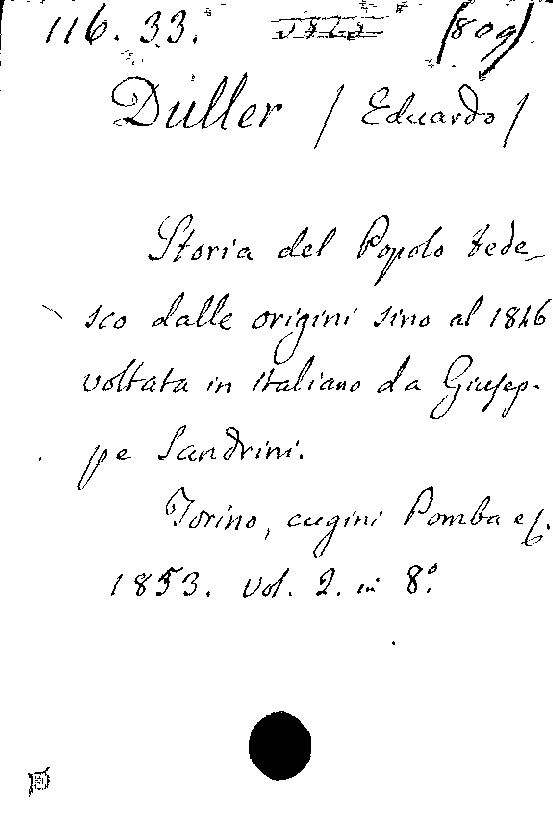 116. 33. (809)
Düller / Eduardo /
Storia del Popolo tede-
sco dalle origini sino al 1846
voltata in italiano da Giusep-
pe Sandrini.
Torino, cugini Pomba e C.
1853. vol. 2. in 8.º